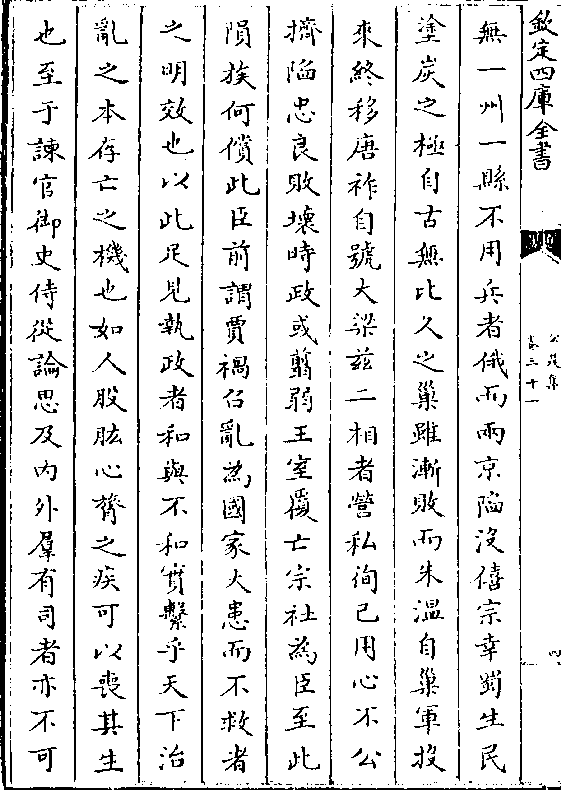 欽定四庫全書
公是集
卷三十一
四
無一州一縣不用兵者俄而兩京陥沒僖宗幸蜀生民
塗炭之極自古無比久之巢雖漸敗而朱溫自巢軍投
來終移唐祚自號大梁兹二相者營私徇已用心不公
擠陥忠良敗壞時政或翦弱王室覆亡宗社為臣至此
隕族何償此臣前謂賈禍召亂為國家大患而不救者
之明效也以此足見執政者和與不和實繫乎天下治
亂之本存亡之機也如人股肱心膂之疾可以喪其生
也至于諫官御史侍從論思及内外羣有司者亦不可